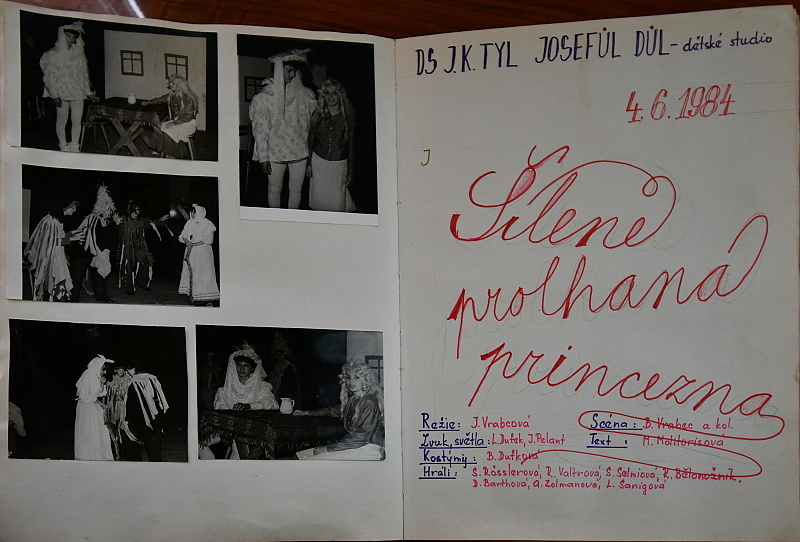 DS J.K. TYL JOSEFŮL DŮL - dětské studio
4.6.1984
Šíleně
prolhaná
princezna
Režie: J. Vrabcová
Scéna: B. Vrabec a kol.
Zvuk, světla: L. Dufek, J. Pelant
Text: M. Molitorisová
Kostýmy: B. Dufková
Hráli: S. Rösslerová, R. Valtrová, S. Selmiová, R. Bělonožník,
D. Barthová, A. Zolmanová, L. Šanigová